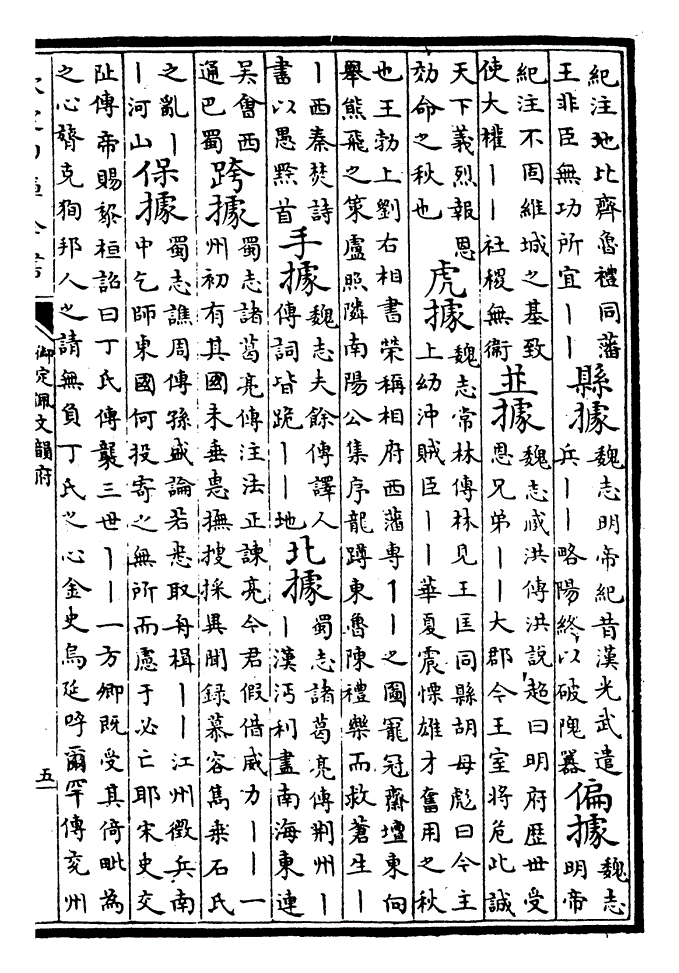 紀注地比齊魯禮同藩
王非臣無功所宜丨丨
縣據
魏志明帝紀昔漢光武遣
兵丨丨略陽終以破隗囂
偏據
魏志
明帝
紀注不固維城之基致
使大權丨丨社稷無衞
並據
魏志臧洪傳洪說超曰明府歷世受
恩兄弟丨丨大郡今王室將危此誠
天下義烈報恩
効命之秋也
虎據
魏志常林傳林見王匡同縣胡母彪曰今主
上幼沖賊臣丨丨華夏震慄雄才奮用之秋
也王勃上劉右相書榮稱相府西藩專丨丨之圖寵冠齋壇東向
舉熊飛之策盧照隣南陽公集序龍蹲東魯陳禮樂而救蒼生丨
丨西秦焚詩
書以愚黔首
手據
魏志夫餘傳譯人
傳詞皆跪丨丨地
北據
蜀志諸葛亮傳荆州丨
丨漢沔利盡南海東連
吳會西
通巴蜀
跨據
蜀志諸葛亮傳注法正諫亮今君假借威力丨丨一
州初有其國未垂惠撫搜採異聞錄慕容雋乗石氏
之亂丨
丨河山
保據
蜀志譙周傳孫盛論若悉取舟楫丨丨江州徵兵南
中乞師東國何投寄之無所而慮于必亡耶宋史交
阯傳帝賜黎桓詔曰丁氏傳襲三世丨丨一方卿既受其倚毗為
之心膂克狥邦人之請無負丁氏之心金史烏延呼爾罕傳兖州
欽定四庫全書
御定佩文韻府
五